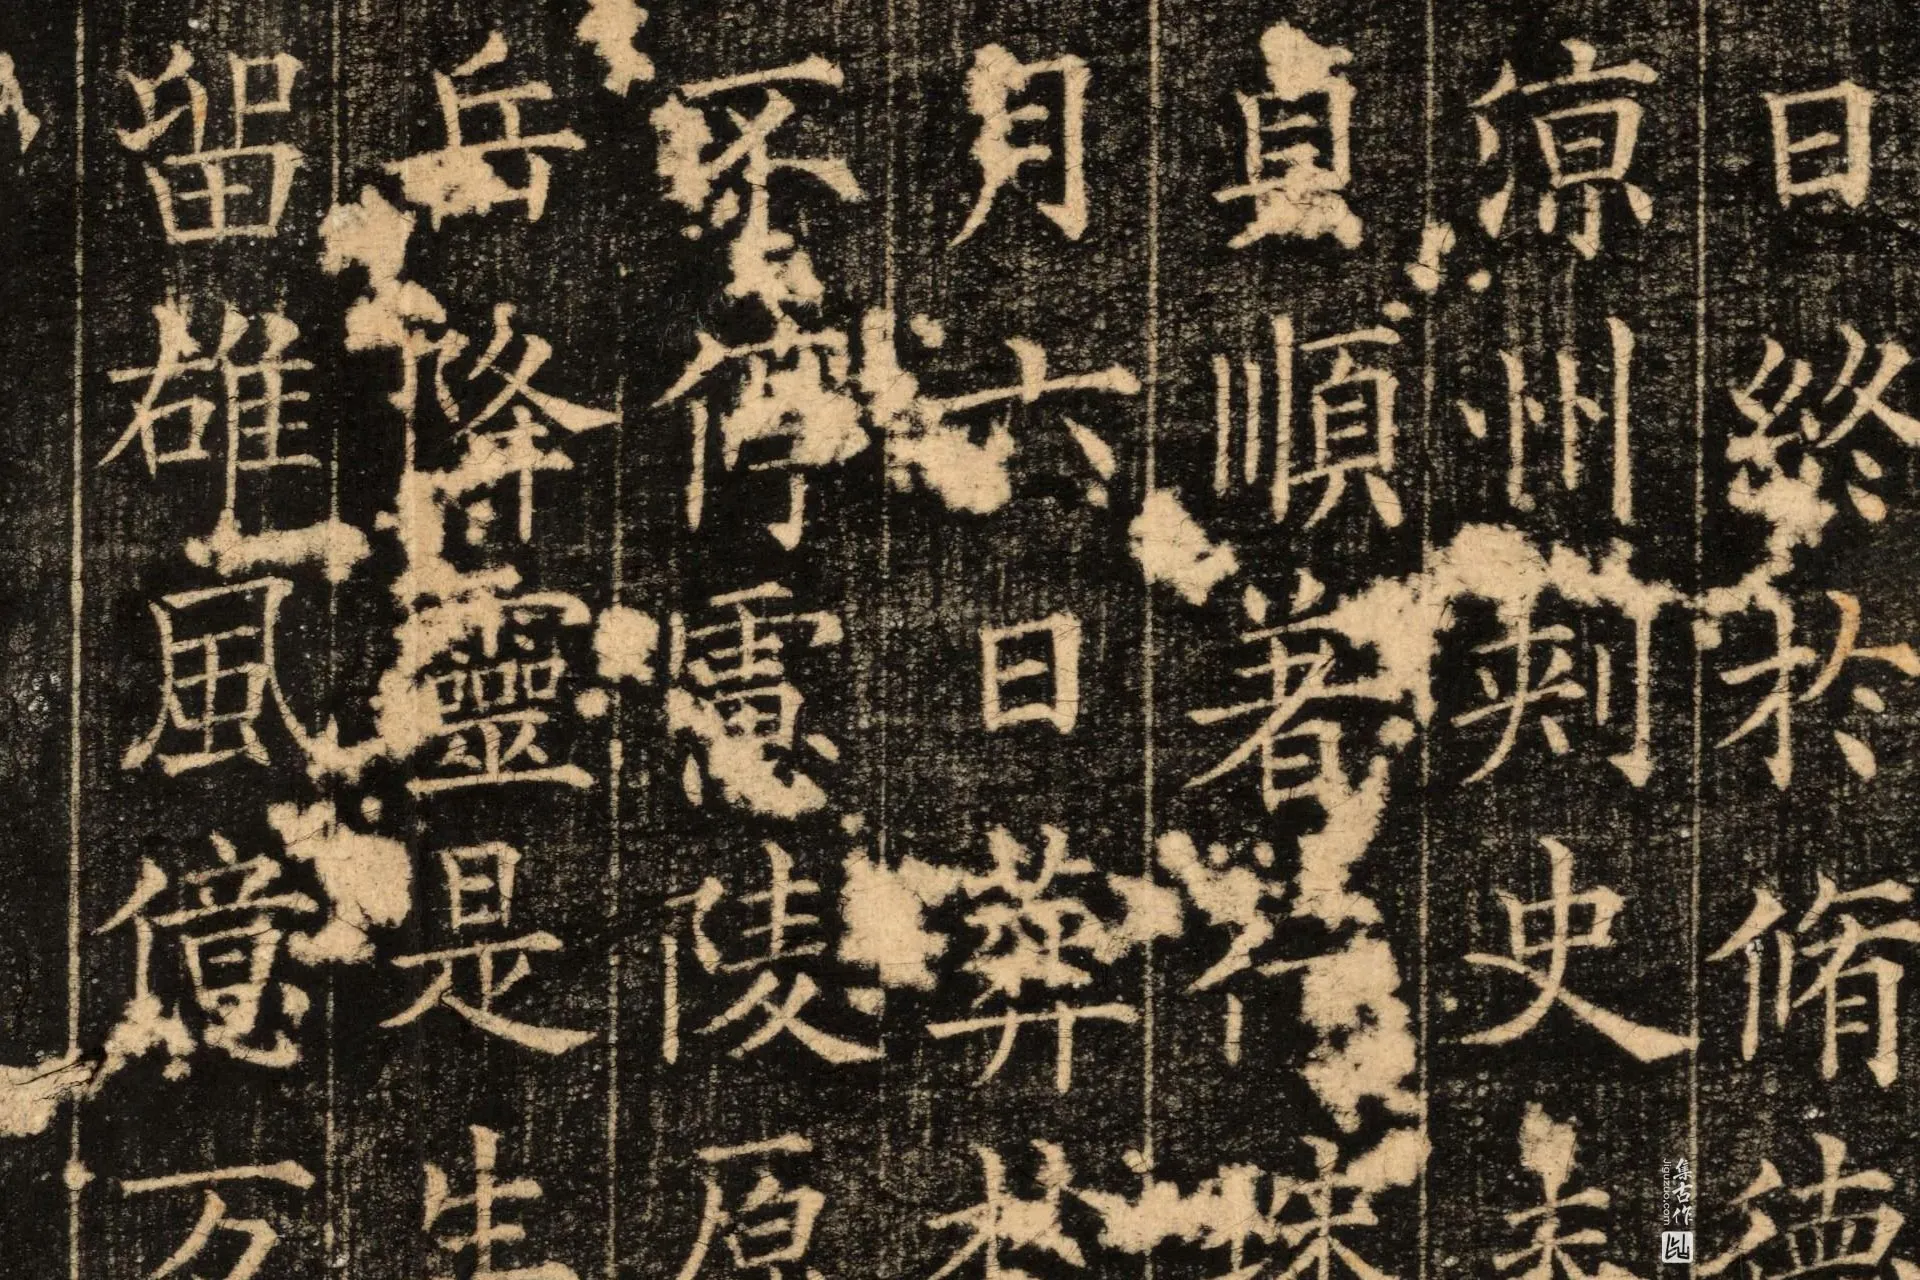 日終於脩德
涼州刾史
貞順著
月六日葬
不停慮陵原
岳降靈是生
留雄風億万
集古作
jiguzuo.com